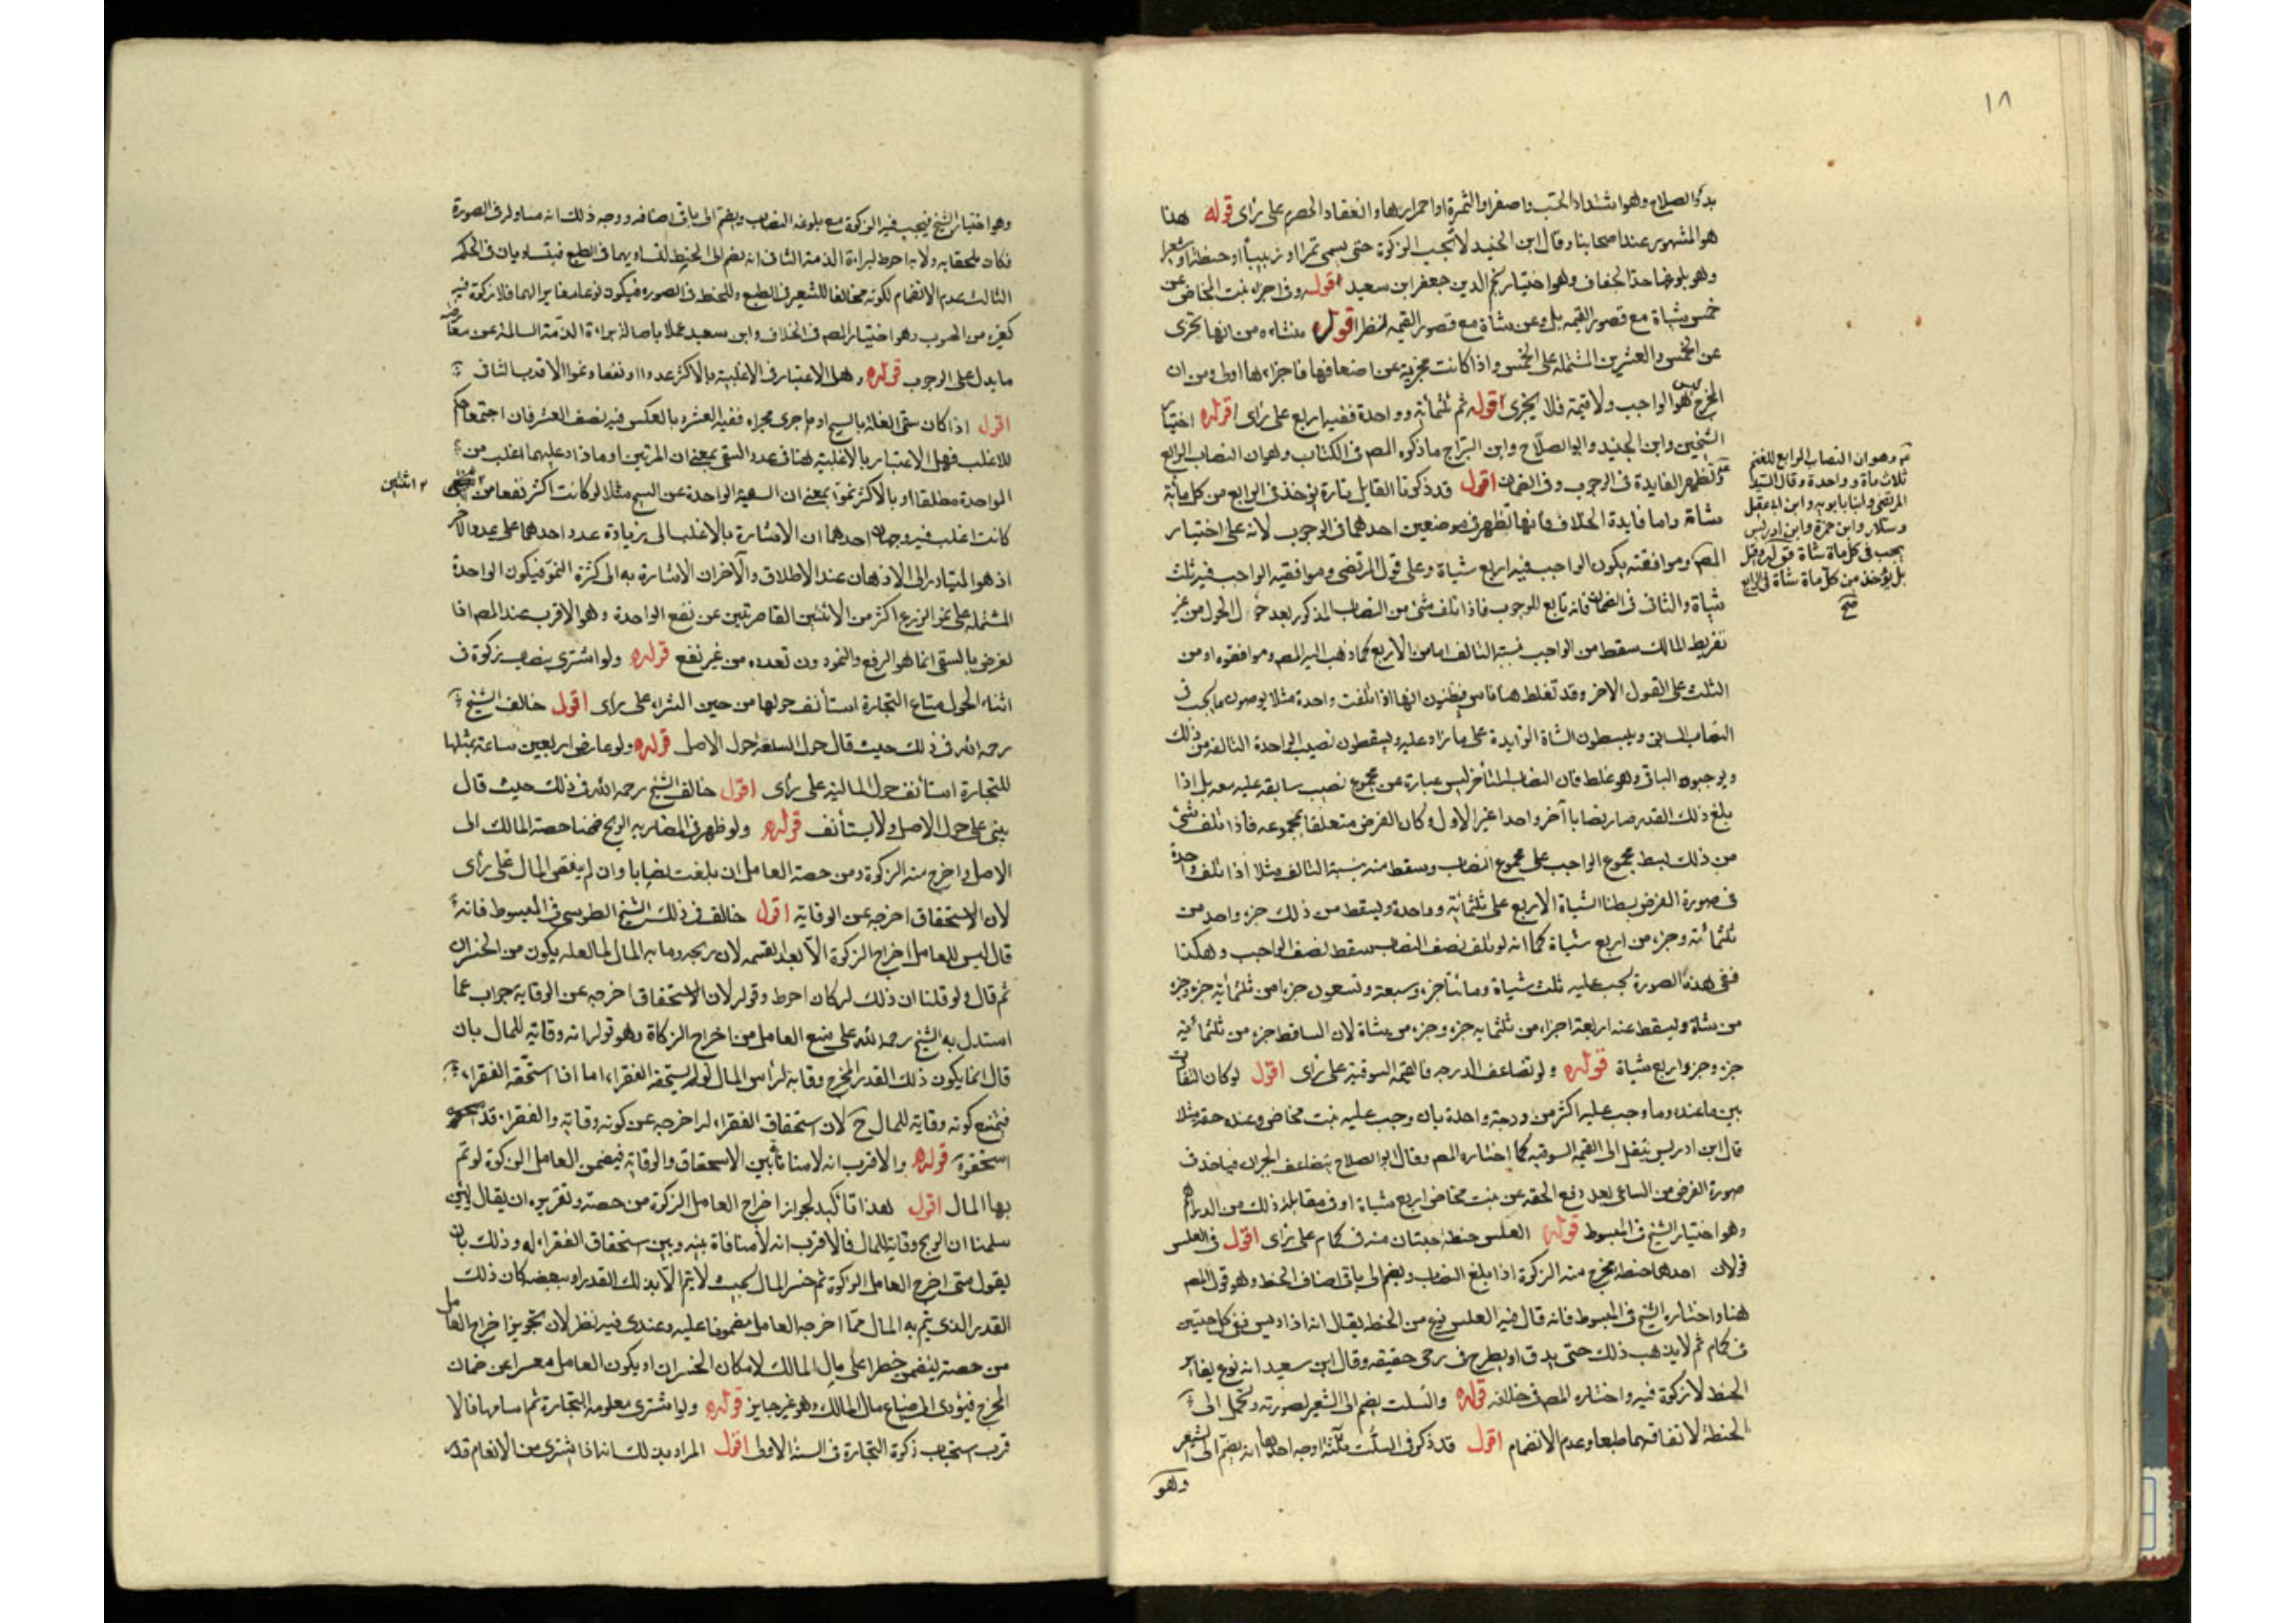 ١٨
بدوّ الصلاح وهو اشتداد الحبّ واصفرار الثمرة او احمرارها وانعقاد الحصرم على رأى قوله هذا
هو المشهور عند اصحابنا وقال ابن الجنيد لا تجب الزكوة حتى يسمى تمرا او زبيبا او حنطة او شعيرا
وهو بلوغها حدّ الجفاف وهو اختيار نجم الدين جعفر ابن سعيد قوله وفى اجزاء بنت المخاض عن
خمس شياة مع قصور القيمه بل وعن شاة مع قصور القيمه نظر اقول منشاءه من انها تجزى
عن الخمس والعشرين المشتمله على الخمس واذا كانت مجزية عن اضعافها فاجزاءها اولى ومن ان
المخرج ليس هو الواجب ولا قيمة فلا يجزى قوله ثم ثلثمأئة وواحدة ففيه اربع على رأى اقول اختيار
الشيخين وابن الجنيد وابو الصلاح وابن البرّاج ما ذكره المص فى الكتاب وهو ان النصاب الرابع
وتظهر الفايدة فى الوجوب وفى الضمان اقول قد ذكرنا القايل بتارة يؤخذ فى الرابع من كل مأئة
شاة واما فايدة الخلاف فانها تظهر فى موضعين احدهما فى الوجوب لانه على اختيار
المص وموافقته يكون الواجب فيه اربع شياة وعلى قول المرتضى وموافقيه الواجب فيه ثلث
شياة والثانى فى الضمان فانه تابع للوجوب فاذا تلف شئ من النصاب المذكور بعد حؤل الحول من غير
تفريط المالك سقط من الواجب نسبة التالف اما من الاربع كما ذهب اليه المص وموافقوه او من
الثلث على القول الاخر وقد تغلط هنا ناس فيظنون انها اذا تلفت واحدة مثلا يوصون ما يجب فى
النصاب السابق ويبسطون الشاة الزايدة على ما زاد عليه ويسقطون نصيب الواحدة التالفة من ذلك
ويوجبون الباقى وهو غلط فان النصاب المتأخر ليس عبارة عن مجموع نصيب سابقه عليه معه بل اذا
بلغ ذلك القدر صار نصابا آخر واحدا غير الاول وكان الفرض متعلقا بمجموعه فاذا تلف شئ
من ذلك بسط مجموع الواجب على مجموع النصاب وسقط منه بنسبة التالف مثلا اذا تلف واحدة
فى صورة الفرض بسطنا الشياة الاربع على ثلثمأئة وواحدة ويسقط من ذلك جزء واحد من
ثلثمأئة وجزء من اربع شياة كما انه لو تلف نصف النصاب سقط نصف الواجب وهكذا
ففى هذه الصورة يجب عليه ثلث شياة ومائتا جزء وسبعة وتسعون جزءا من ثلثمأية جزء وجزء
من شاة ويسقط عنه اربعة اجزاء من ثلثمايه جزء وجزء من شاة لان الساقط جزء من ثلثمأية
جزء وجزء واربع شياة قوله ولو تضاعف الدرجه فالقيمه السوقية على رأى اقول لو كان التفاوت
بين ما عنده وما وجب عليه اكثر من درجة واحدة بان وجب عليه بنت مخاض وعنده حقه مثلا
قال ابن ادريس ينتقل الى القيمه السوقيه كما اختاره المص وقال ابو الصلاح يتضاعف الجبران فياخذ فى
صورة الفرض من الساعى بعد دفع الحقه عن بنت مخاض اربع شياة او فى مقابلة ذلك من الدراهم
وهو اختيار الشيخ فى المبسوط قوله العلس حنطة حبتان منه فى كمام على رأى اقول فى العلس
قولان احدهما حنطة يخرج منه الزكوة اذا بلغ النصاب ويضم الى باقى اصناف الحنطه وهو قول المص
هنا واختاره الشيخ فى المبسوط فانه قال فيه العلس نوع من الحنطه يقال انه اذا ديس بقى كل حبتين
فى كمام ثم لا يذهب ذلك حتى يدق او يطرح فى رحى خفيفه وقال ابن سعيد انه نوع يغاير
الحنطه لا زكوة فيه واختاره المص فى خلافه قوله والسلت يضم الى الشعير لصورته ويحتمل الى
الحنطة لاتفاقهما طبعا وعدم الانضمام اقول قد ذكر فى السلت ثلثة اوجه احدها انه يضم الى الشعير
وهو
وهو ان النصاب الرابع للغنم
ثلاث مأة وواحدة وقال السيد
المرتضى وابنا بابويه وابن ابى عقيل
وسلار وابن حمزة وابن ادريس
يجب فى كل مأة شاة قوله وقيل
بل يؤخذ من كل مأة شاة فى الرابع
صح
وهو اختيار الشيخ فيجب فيه الزكوة مع بلوغه النصاب ويضم الى باقى اصنافه ووجه ذلك انه مساو له فى الصورة
فكان ملحقا به ولانه احوط لبراءة الذمة الثانى انه يضم الى الحنطه لتساويهما فى الطبع فيتساويان فى الحكم
الثالث عدم الانضمام لكونه مخالفا للشعير فى الطبع وللحنطه فى الصوره فيكون نوعا مغايرا لهما فلا زكوة فيه
كغيره من الحبوب وهو اختيار المص فى الخلاف وابن سعيد عملا باصالة براءة الذمّة السالمة عن معارضه
ما يدل على الوجوب قوله وهل الاعتبار فى الاغلبية بالاكثر عددا او نفعا ونموا الاقرب الثانى
اقول اذا كان سقى الغلة بالسيح او ما جرى مجراه ففيه العشر وبالعكس فيه نصف العشر فان اجتمعا حكم
للاغلب فهل الاعتبار بالاغلبية هنا فى عدد السقى بمعنى ان المرتين او ما زاد عليهما اغلب من
الواحدة مطلقا او بالاكثر نموّا بمعنى ان السقية الواحدة عن السيح مثلا لو كانت اكثر نفعا من
٢ اثنتين
كانت اغلب فيه وجهان احدهما ان الاشارة بالاغلب الى زيادة عدد احدهما على عدد الآخر
اذ هو المتبادر الى الاذهان عند الاطلاق والآخر ان الاشارة به الى كثرة النموّ فيكون الواحدة
المشتمله على نمو الزرع اكثر من الاثنتين القاصرتين عن نفع الواحدة وهو الاقرب عند المص اذا
لغرض بالسقى انما هو الرفع والنمو دون تعدده من غير نفع قوله ولو اشترى بنصاب زكوة فى
اثناء الحول متاع التجارة استأنف حولها من حين الشراء على رأى اقول خالف الشيخ
رحمه الله فى ذلك حيث قال حول السلعة حول الاصل قوله ولو عارض اربعين سائمة بمثلها
للتجارة استأنف حول المالية على رأى اقول خالف الشيخ رحمه الله فى ذلك حيث قال
يبنى على حول الاصل ولا يستأنف قوله ولو ظهر فى المضاربه الربح ضمنا حصة المالك الى
الاصل واخرج منه الزكوة ومن حصة العامل ان بلغت نصابا وان لم ينقص المال على رأى
لان الاستحقاق اخرجه عن الوقاية اقول خالف فى ذلك الشيخ الطوسى فى المبسوط فانه
قال ليس للعامل اخراج الزكوة الا بعد القسمه لان ربحه وما به المال لما لعله يكون من الخسران
ثم قال ولو قلنا ان ذلك له كان احوط وقوله لان الاستحقاق اخرجه عن الوقايه جواب عما
استدل به الشيخ رحمه الله على منع العامل من اخراج الزكاة وهو قوله انه وقاية للمال بان
قال انما يكون ذلك القدر المخرج وقاية لرأس المال لو لم يستحقه الفقراء اما اذا استحقه الفقراء
فيمتنع كونه وقاية للمال ح لان استحقاق الفقراء له اخرجه عن كونه وقاية والفقراء قد
استحقوه قوله والاقرب انه لا منافاة بين الاستحقاق والوقاية فيضمن العامل الزكوة لو تم
بها المال اقول هذا تأكيد لجواز اخراج العامل الزكوة من حصته وتقريره ان يقال لئن
سلمنا ان الربح وقاية للمال فالاقرب انه لا منافاة بينه وبين استحقاق الفقراء له وذلك بان
يقول متى اخرج العامل الزكوة ثم خسر المال بحيث لا يتم الا بذلك القدر او ببعضه كان ذلك
القدر الذى يتم به المال ممّا اخرجه العامل مضمونا عليه وعندى فيه نظر لان تجويز اخراج العامل
من حصته يتضمن خطرا على مال المالك لامكان الخسران او يكون العامل معسرا عن ضمان
المخرج فيؤدى الى ضياع مال المالك وهو غير جايز قوله ولو اشترى معلوفه للتجارة ثم اسامها فالا
قرب استحباب زكوة التجارة فى السنة الاولى اقول المراد بذلك انه اذا اشترى من الانعام قدر